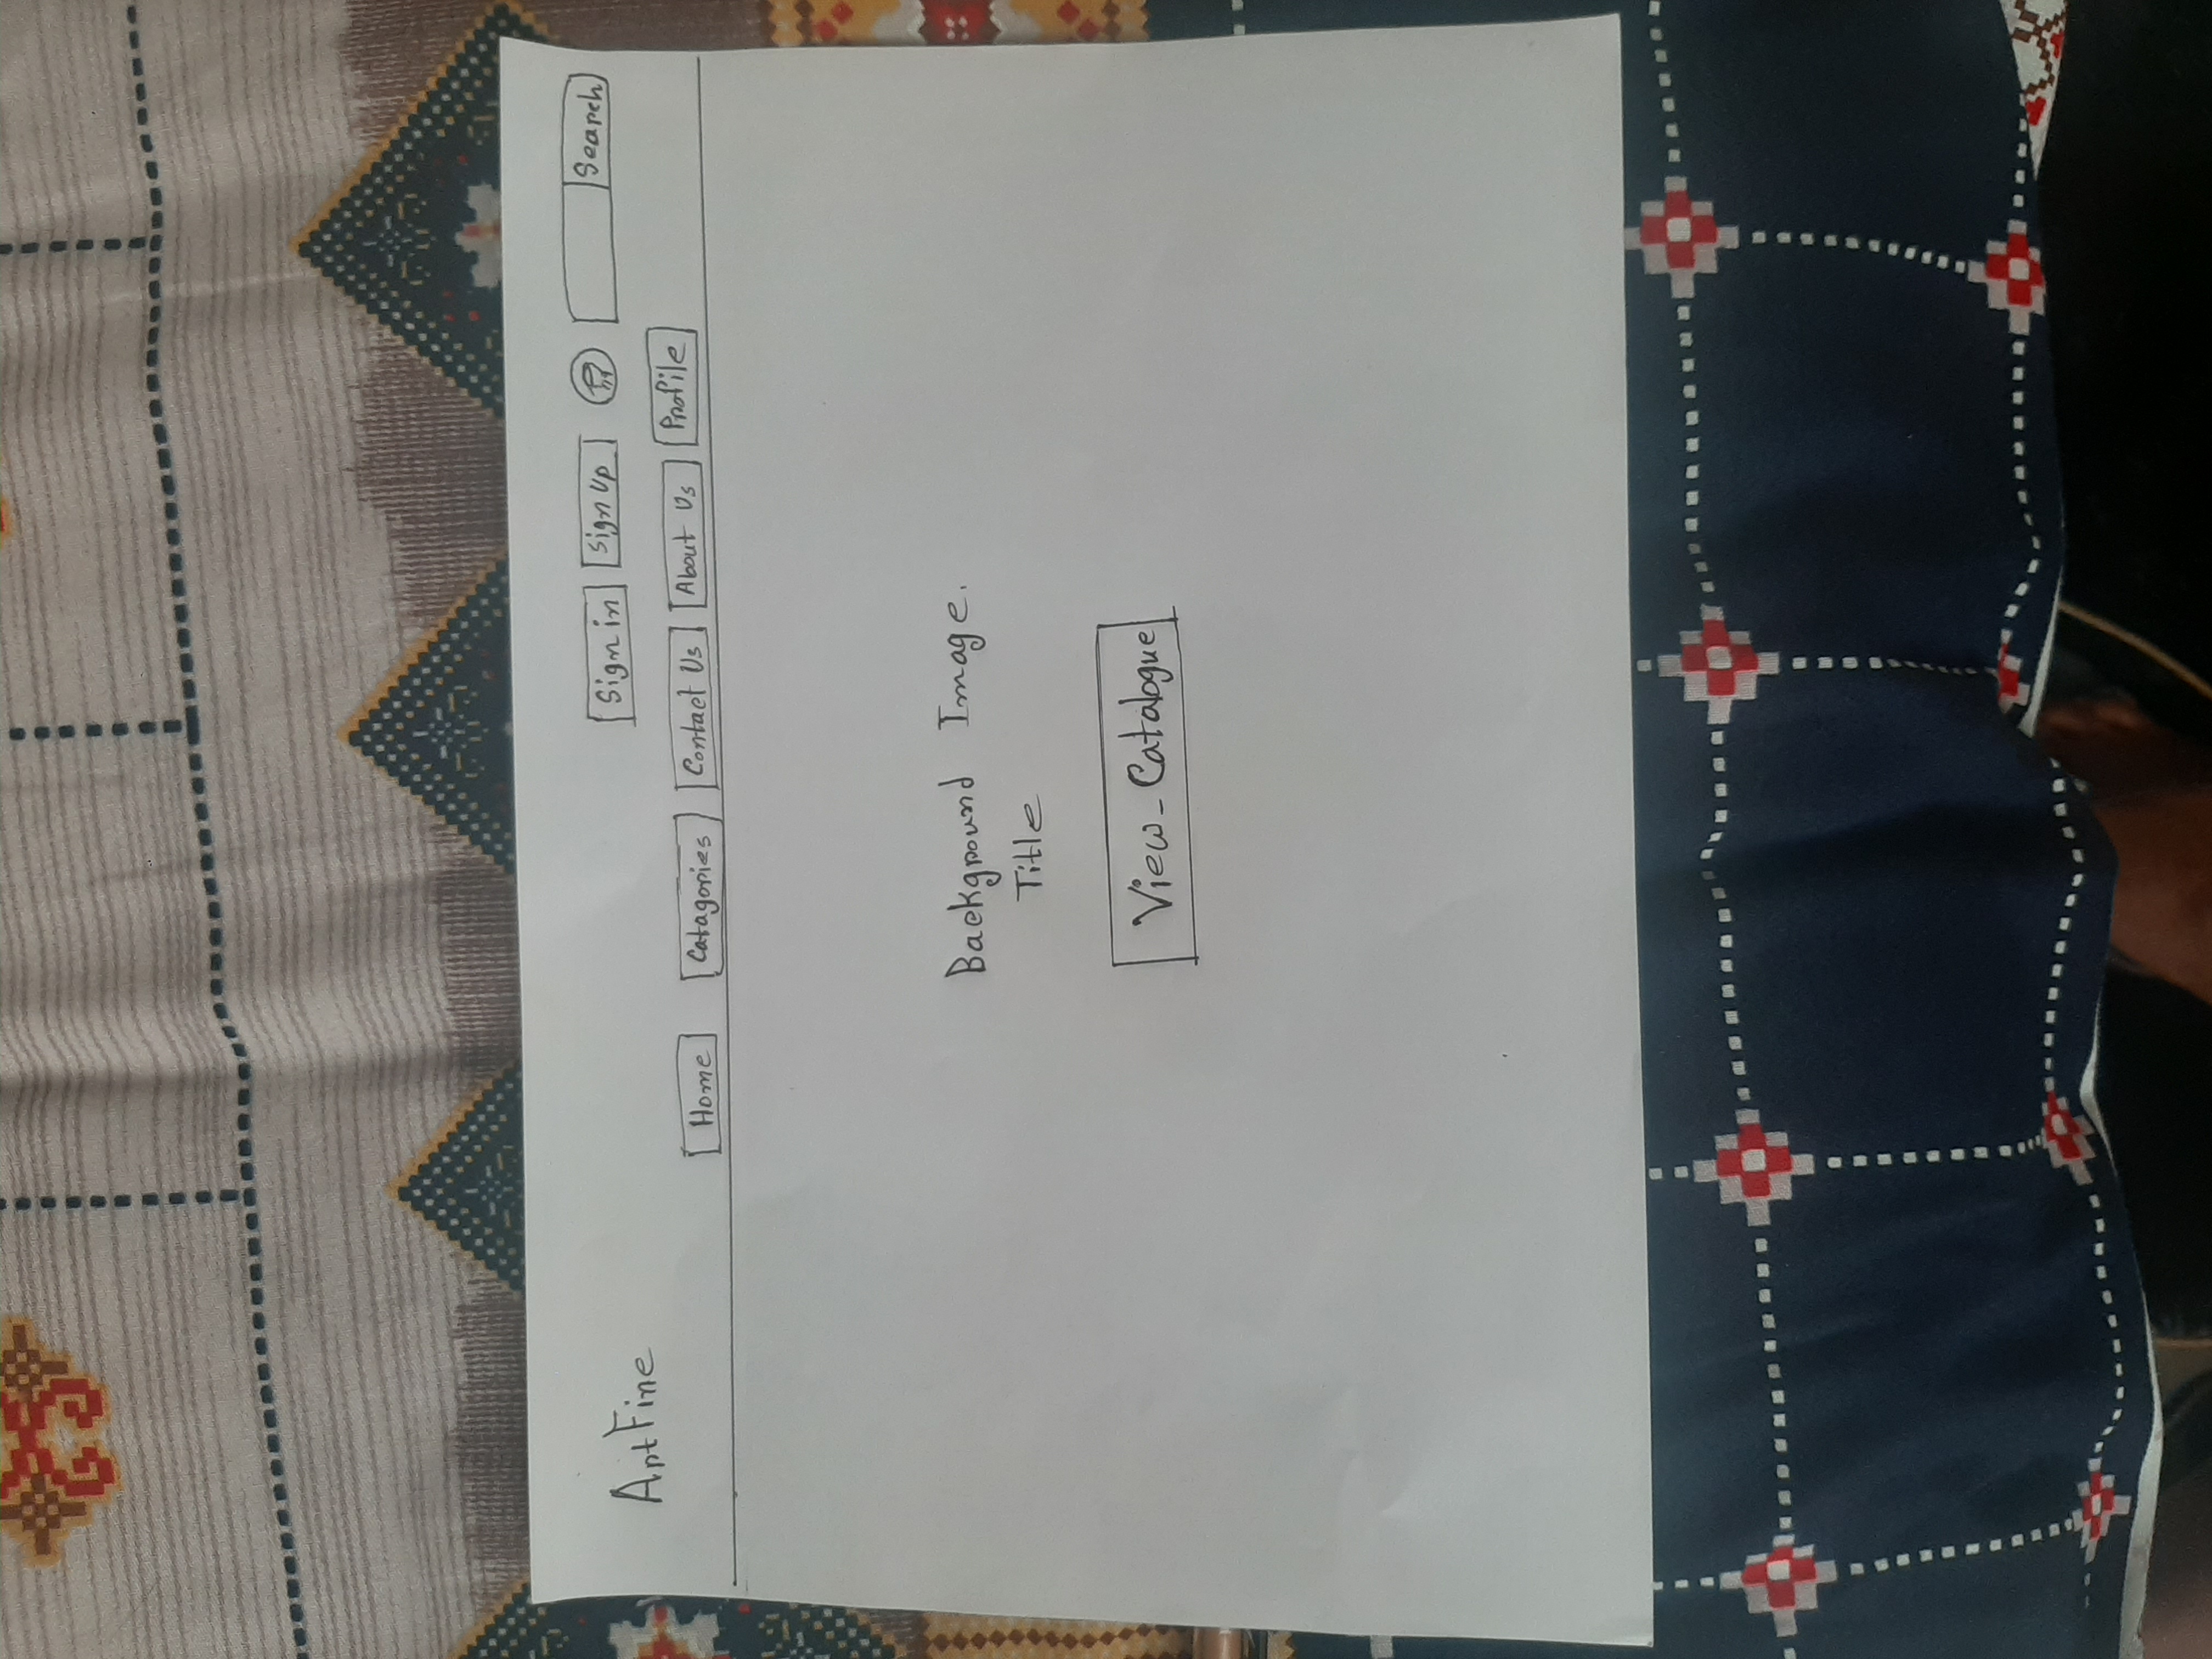 ArtFine
Sign in Sign Up Search
Home Catagories Contact Us About Us Profile
Background Image.
Title
View_Catalogue